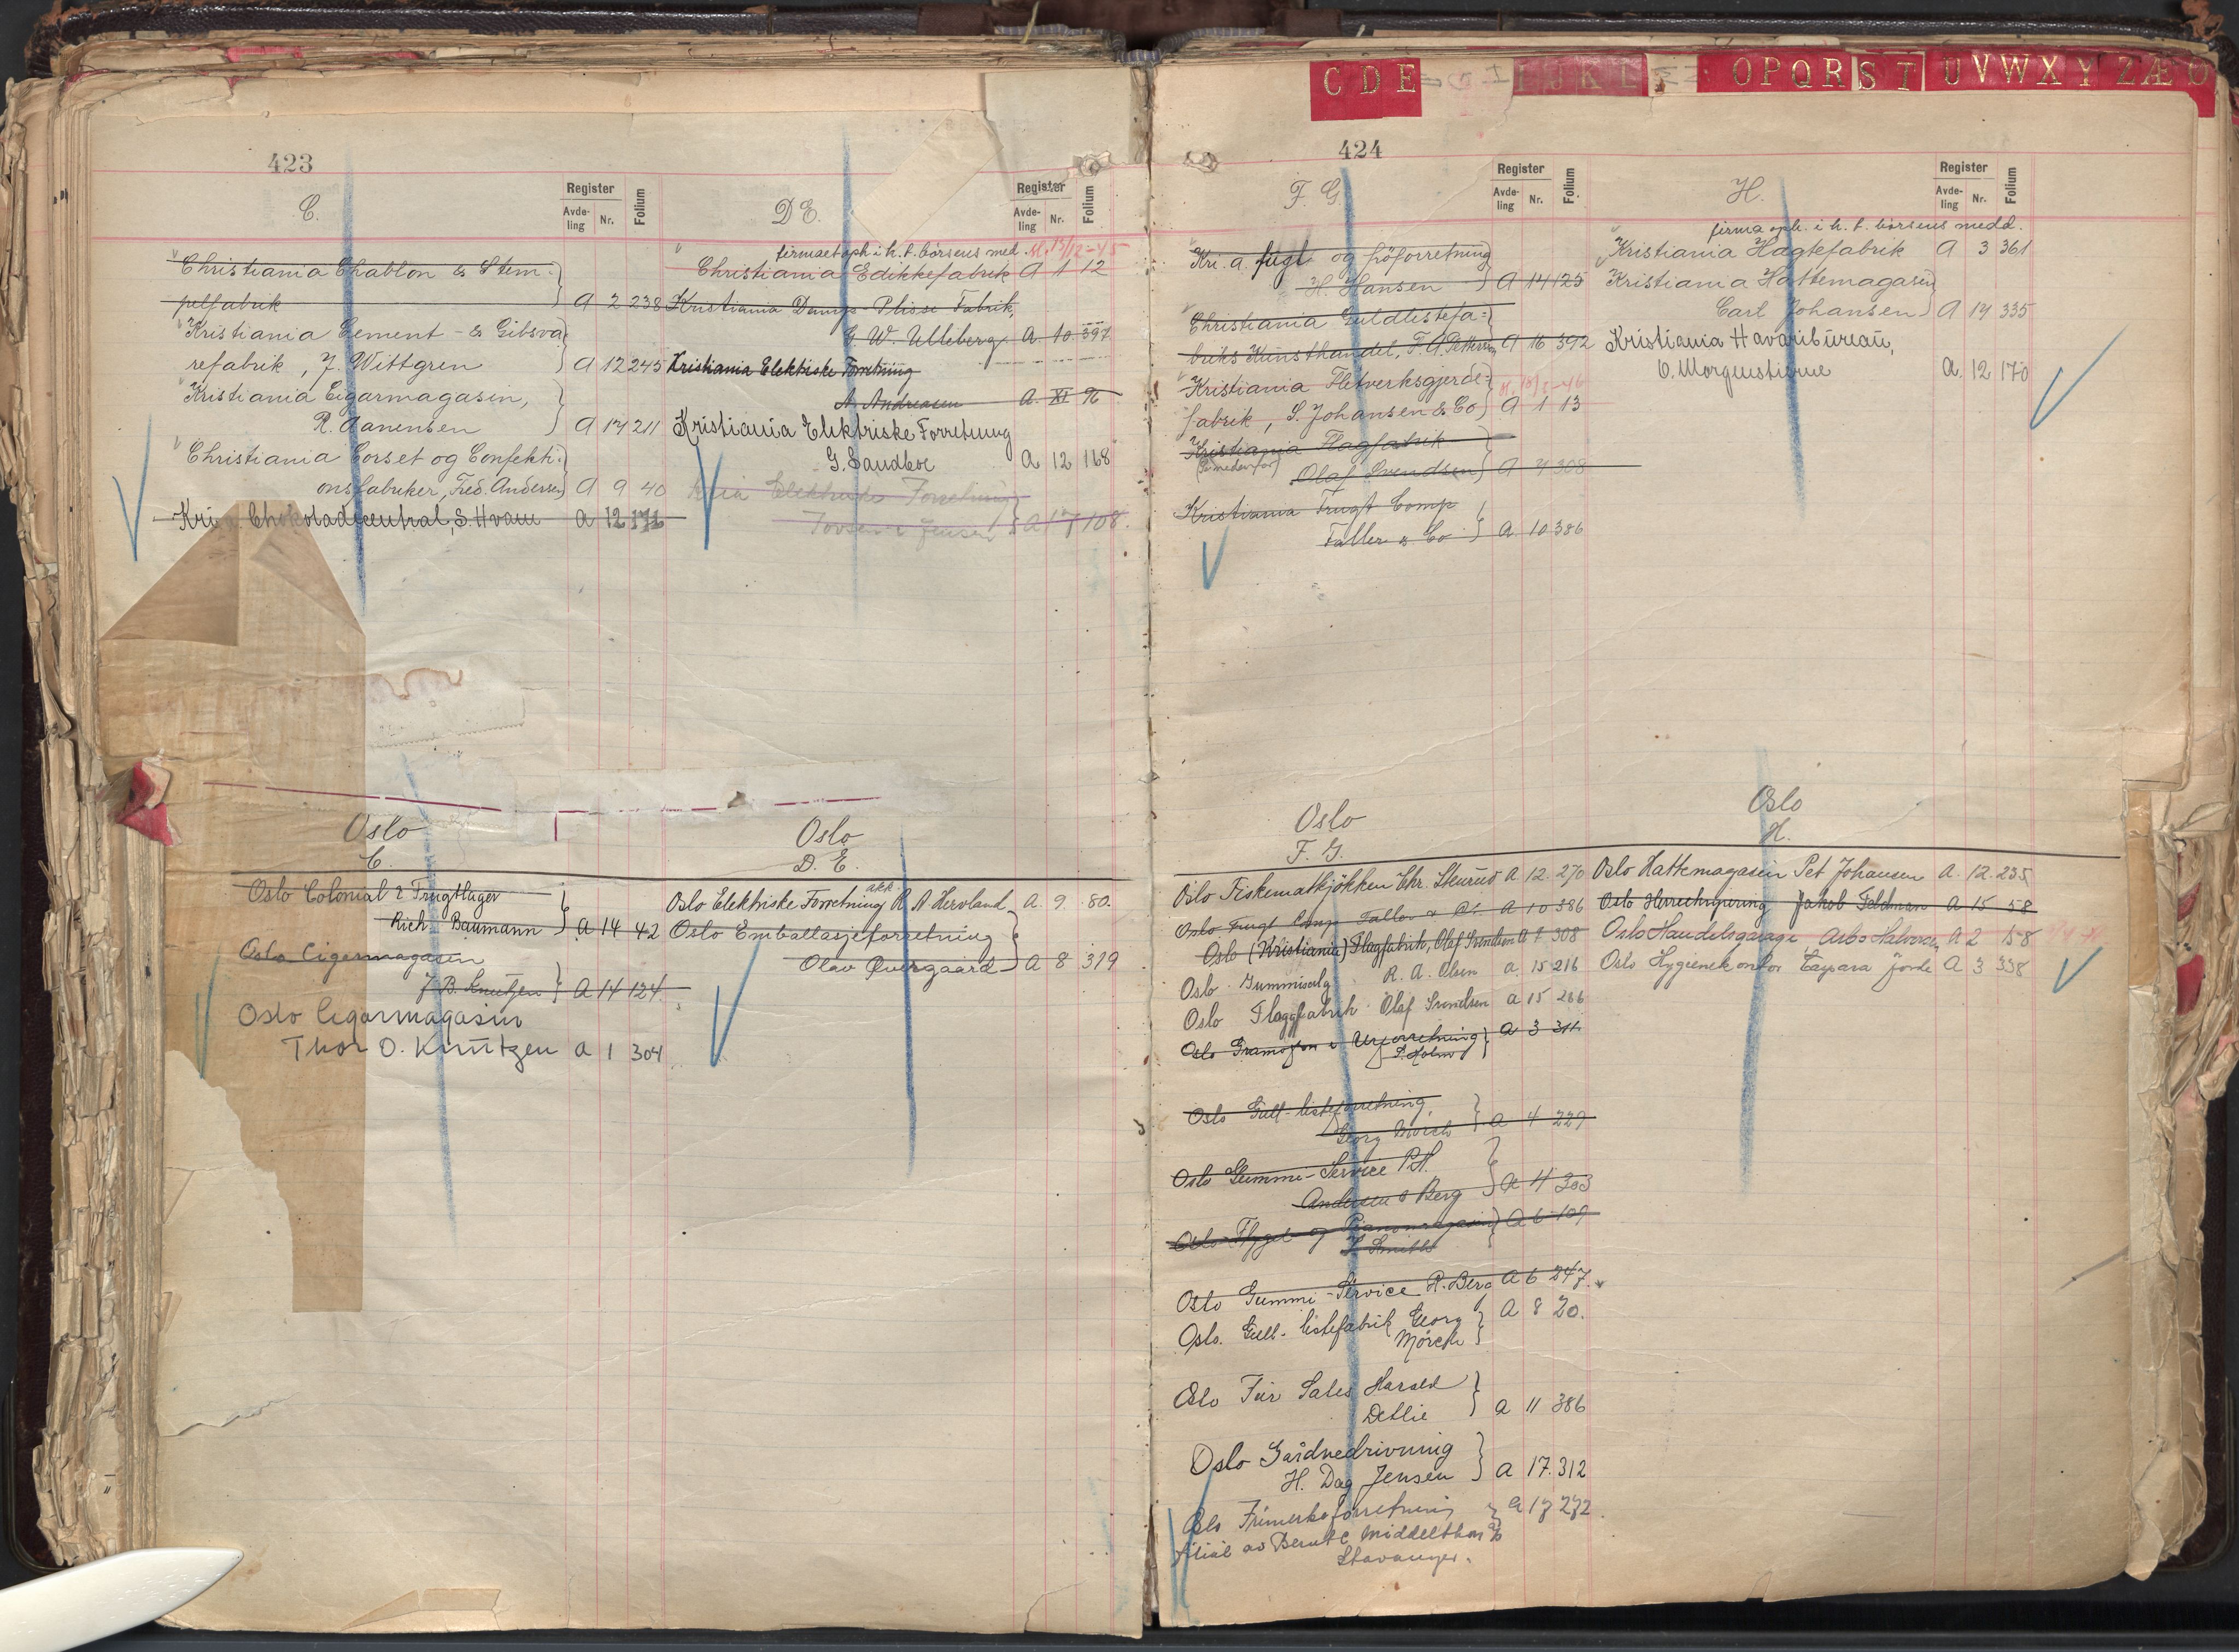 C D E I J K L O P Q R S T U V W X Y Z Æ Ø
423
C.
Register
Avde-
ling
Nr.
Folium
Christiania Chablon & Stem-
pelfabrik A 2 238
Kristiania Cement- & Gibsva
refabrik, J. Wittgren A 12 245
Kristiania Cigarmagasin,
R. Aanensen A 17 211
Christiania Corset og Confekti-
onsfabriker, Fred. Andersen A 9 40
Kri.a Chokoladecentral, S. Hvam A 12 171
D E.
Register
Avde-
ling
Nr.
Folium
firmaet oph. i h. t. børsens med. 13/12-45
Christiania Edikkefabrik A 1 12
Kristiania Damp- Plisse Fabrik,
G. W. Ulleberg A. 10 397
Kristiania Elektriske Forretning
A. Andreasen A. XI 96
Kristiania Elektriske Forretning
G. Sandboe A 12 168
Kria Elektriske Forretning
Jensen A 17 108.
Oslo
C.
Oslo Colonial & Frugtlager
Rich. Baumann A 14 42
Oslo Cigarmagasin
J. B. Knutzen A 14 124
Oslo Cigarmagasin
Thor O. Knutzen A 1 304
Oslo
D. E.
Oslo Elektriske Forretning R. A. Hervland A. 9. 80.
Oslo Emballasjeforretning
Olav Qvergaard A 8 319
424
F. G.
Register
Avde-
ling
Nr.
Folium
Kri.a. fugl og frøforretning
H. Hansen A 14 125
Christiania Guldlistefa-
briks Kunsthandel, F. A. Pettersen A 16 392
Kristiania Fletverksgjerde-
fabrik, S. Johansen & Co A 1 13
Kristiania Flagfabrik
(se nedenfor) Olaf Svendsen A 7 308
Kristiania Frugt Comp
Faller & Co A. 10 386
H.
Register
Avde-
ling
Nr.
Folium
firma oph. i h. t. børsens medd.
Kristiania Hægtefabrik A 3 361
Kristiania Hattemagasin
Carl Johansen A 14 335
Kristiania Havaribureau,
O. Morgenstierne A. 12 170
Oslo
F. G.
Oslo Fiskematkjøkken Chr. Stensrud A. 12. 270
Oslo Frugt Comp Faller & Co. A 10 386
Oslo (Kristiania) Flagfabrik, Olaf Svendsen A 7 308
Oslo Gummisalg R. A. Olsen a. 15 216
Oslo Flaggfabrik Olaf Svendsen a 15 286
Oslo Gramofon & Urforretning A 3 311
P. Holm
Oslo Gull-listeforretning,
Georg Mørch A 4 229
Oslo Gummi-Service P.H.
Andersen & Berg A 4 303
Oslo Flygel og Pianomagasin A 6 109
Smith
Oslo Gummi-Service R. Berg A 6 247.
Oslo. Gull-listefabrik Georg A 8 20.
Mørch
Oslo Fur Sales Harald
Detlie a 11 386
Oslo Gårdnedrivning
H. Dag Jensen A 17. 312
Oslo Frimerkeforretning a 17 272
filial av Bernt C Middelthon
Stavanger.
Oslo
H.
Oslo Hattemagasin Pet Johansen A. 12. 235
Oslo Herreekvipering Jakob Feldman A 15 58
Oslo Handelsgarage, Asbs Halvorsen A 2 158
Oslo Hygienekontor Caspara Jorde A 3 338